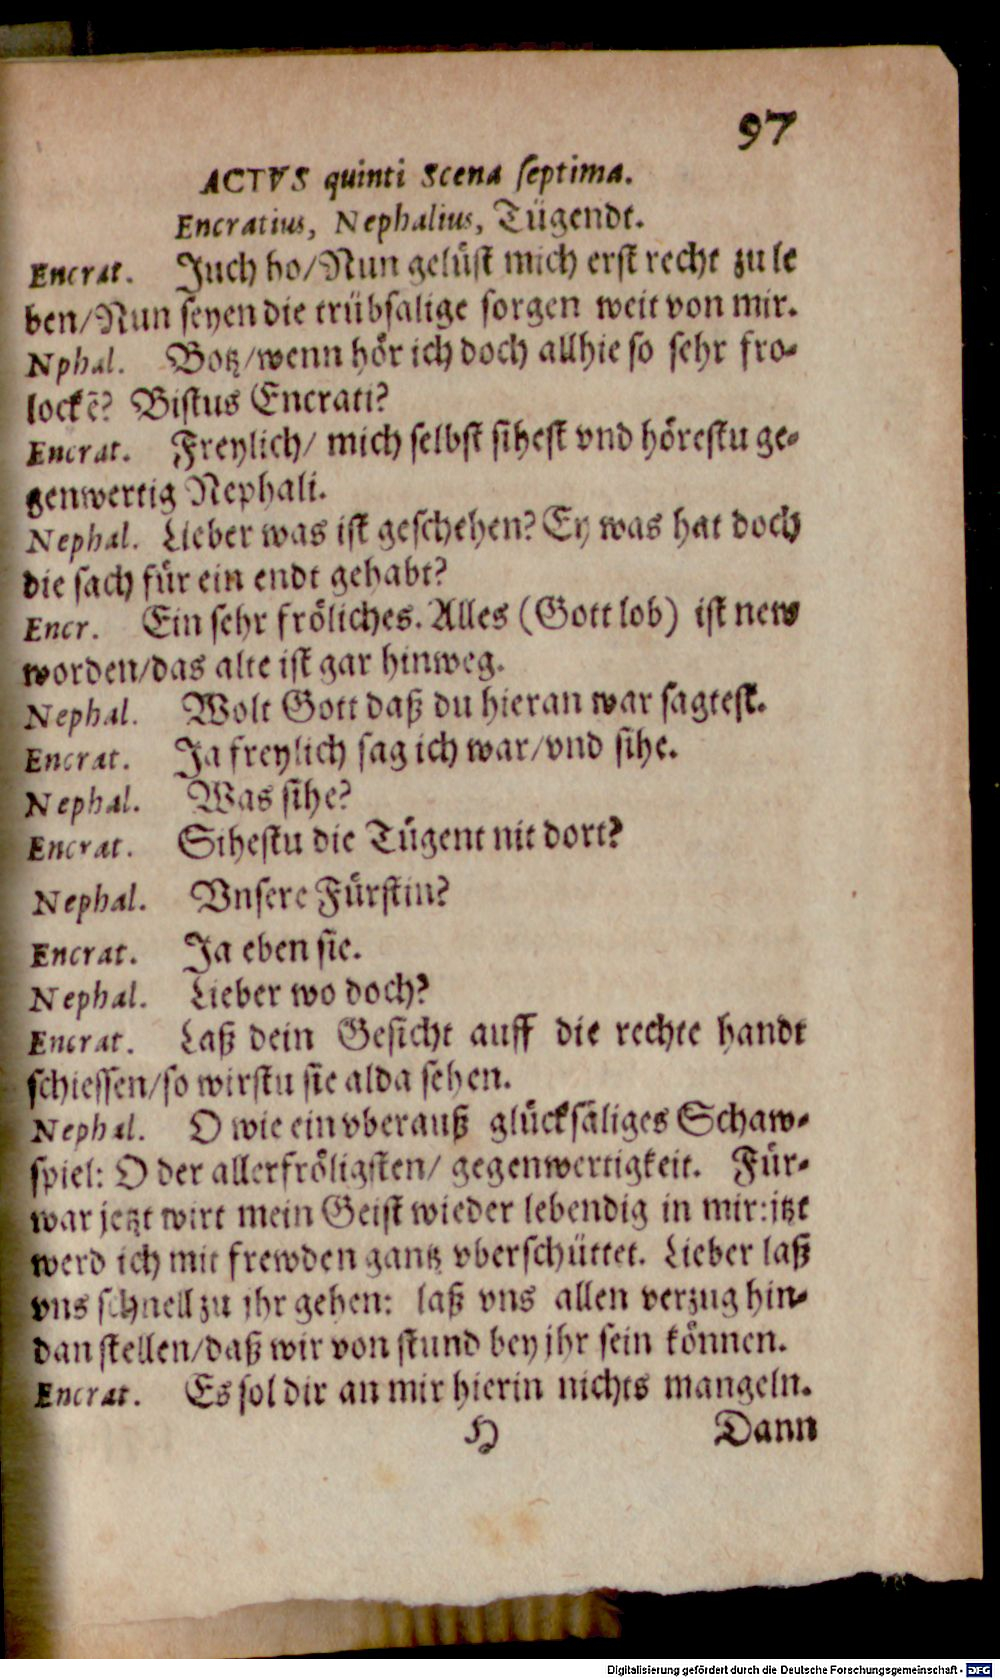 97
ACTVS quinti Scena septima.
Encratius, Nephalius, Tügendt.
Encrat. Juch ho/Nun gelüst mich erst recht zu le
ben/Nun seyen die trübsalige sorgen weit von mir.
Nphal. Botz/wenn hör ich doch allhie so sehr fro-
lockē? Bistus Encrati?
Encrat. Freylich/ mich selbst sihest vnd hörestu ge-
genwertig Nephali.
Nephal. Lieber was ist geschehen? Ey was hat doch
die sach für ein endt gehabt?
Encr. Ein sehr fröliches. Alles (Gott lob) ist new
worden/das alte ist gar hinweg.
Nephal. Wolt Gott daß du hieran war sagtest.
Encrat. Ja freylich sag ich war/vnd sihe.
Nephal. Was sihe?
Encrat. Sihestu die Tügent nit dort?
Nephal. Vnsere Fürstin?
Encrat. Ja eben sie.
Nephal. Lieber wo doch?
Encrat. Laß dein Gesicht auff die rechte handt
schiessen/so wirstu sie alda sehen.
Nephal. O wie ein vberauß glücksäliges Schaw-
spiel: O der allerfröligsten/ gegenwertigkeit. Für-
war jetzt wirt mein Geist wieder lebendig in mir:jtzt
werd ich mit frewden gantz vberschüttet. Lieber laß
vns schnell zu jhr gehen: laß vns allen verzug hin-
dan stellen/daß wir von stund bey jhr sein können.
Encrat. Es sol dir an mir hierin nichts mangeln.
H Dann
Digitalisierung gefördert durch die Deutsche Forschungsgemeinschaft - DFG